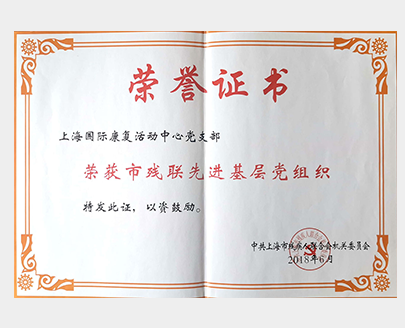 荣誉证书
上海国际康复活动中心党支部
荣获市残联先进基层党组织
特发此证，以资鼓励。
中共上海市残疾人联合会机关委员会
2018年6月